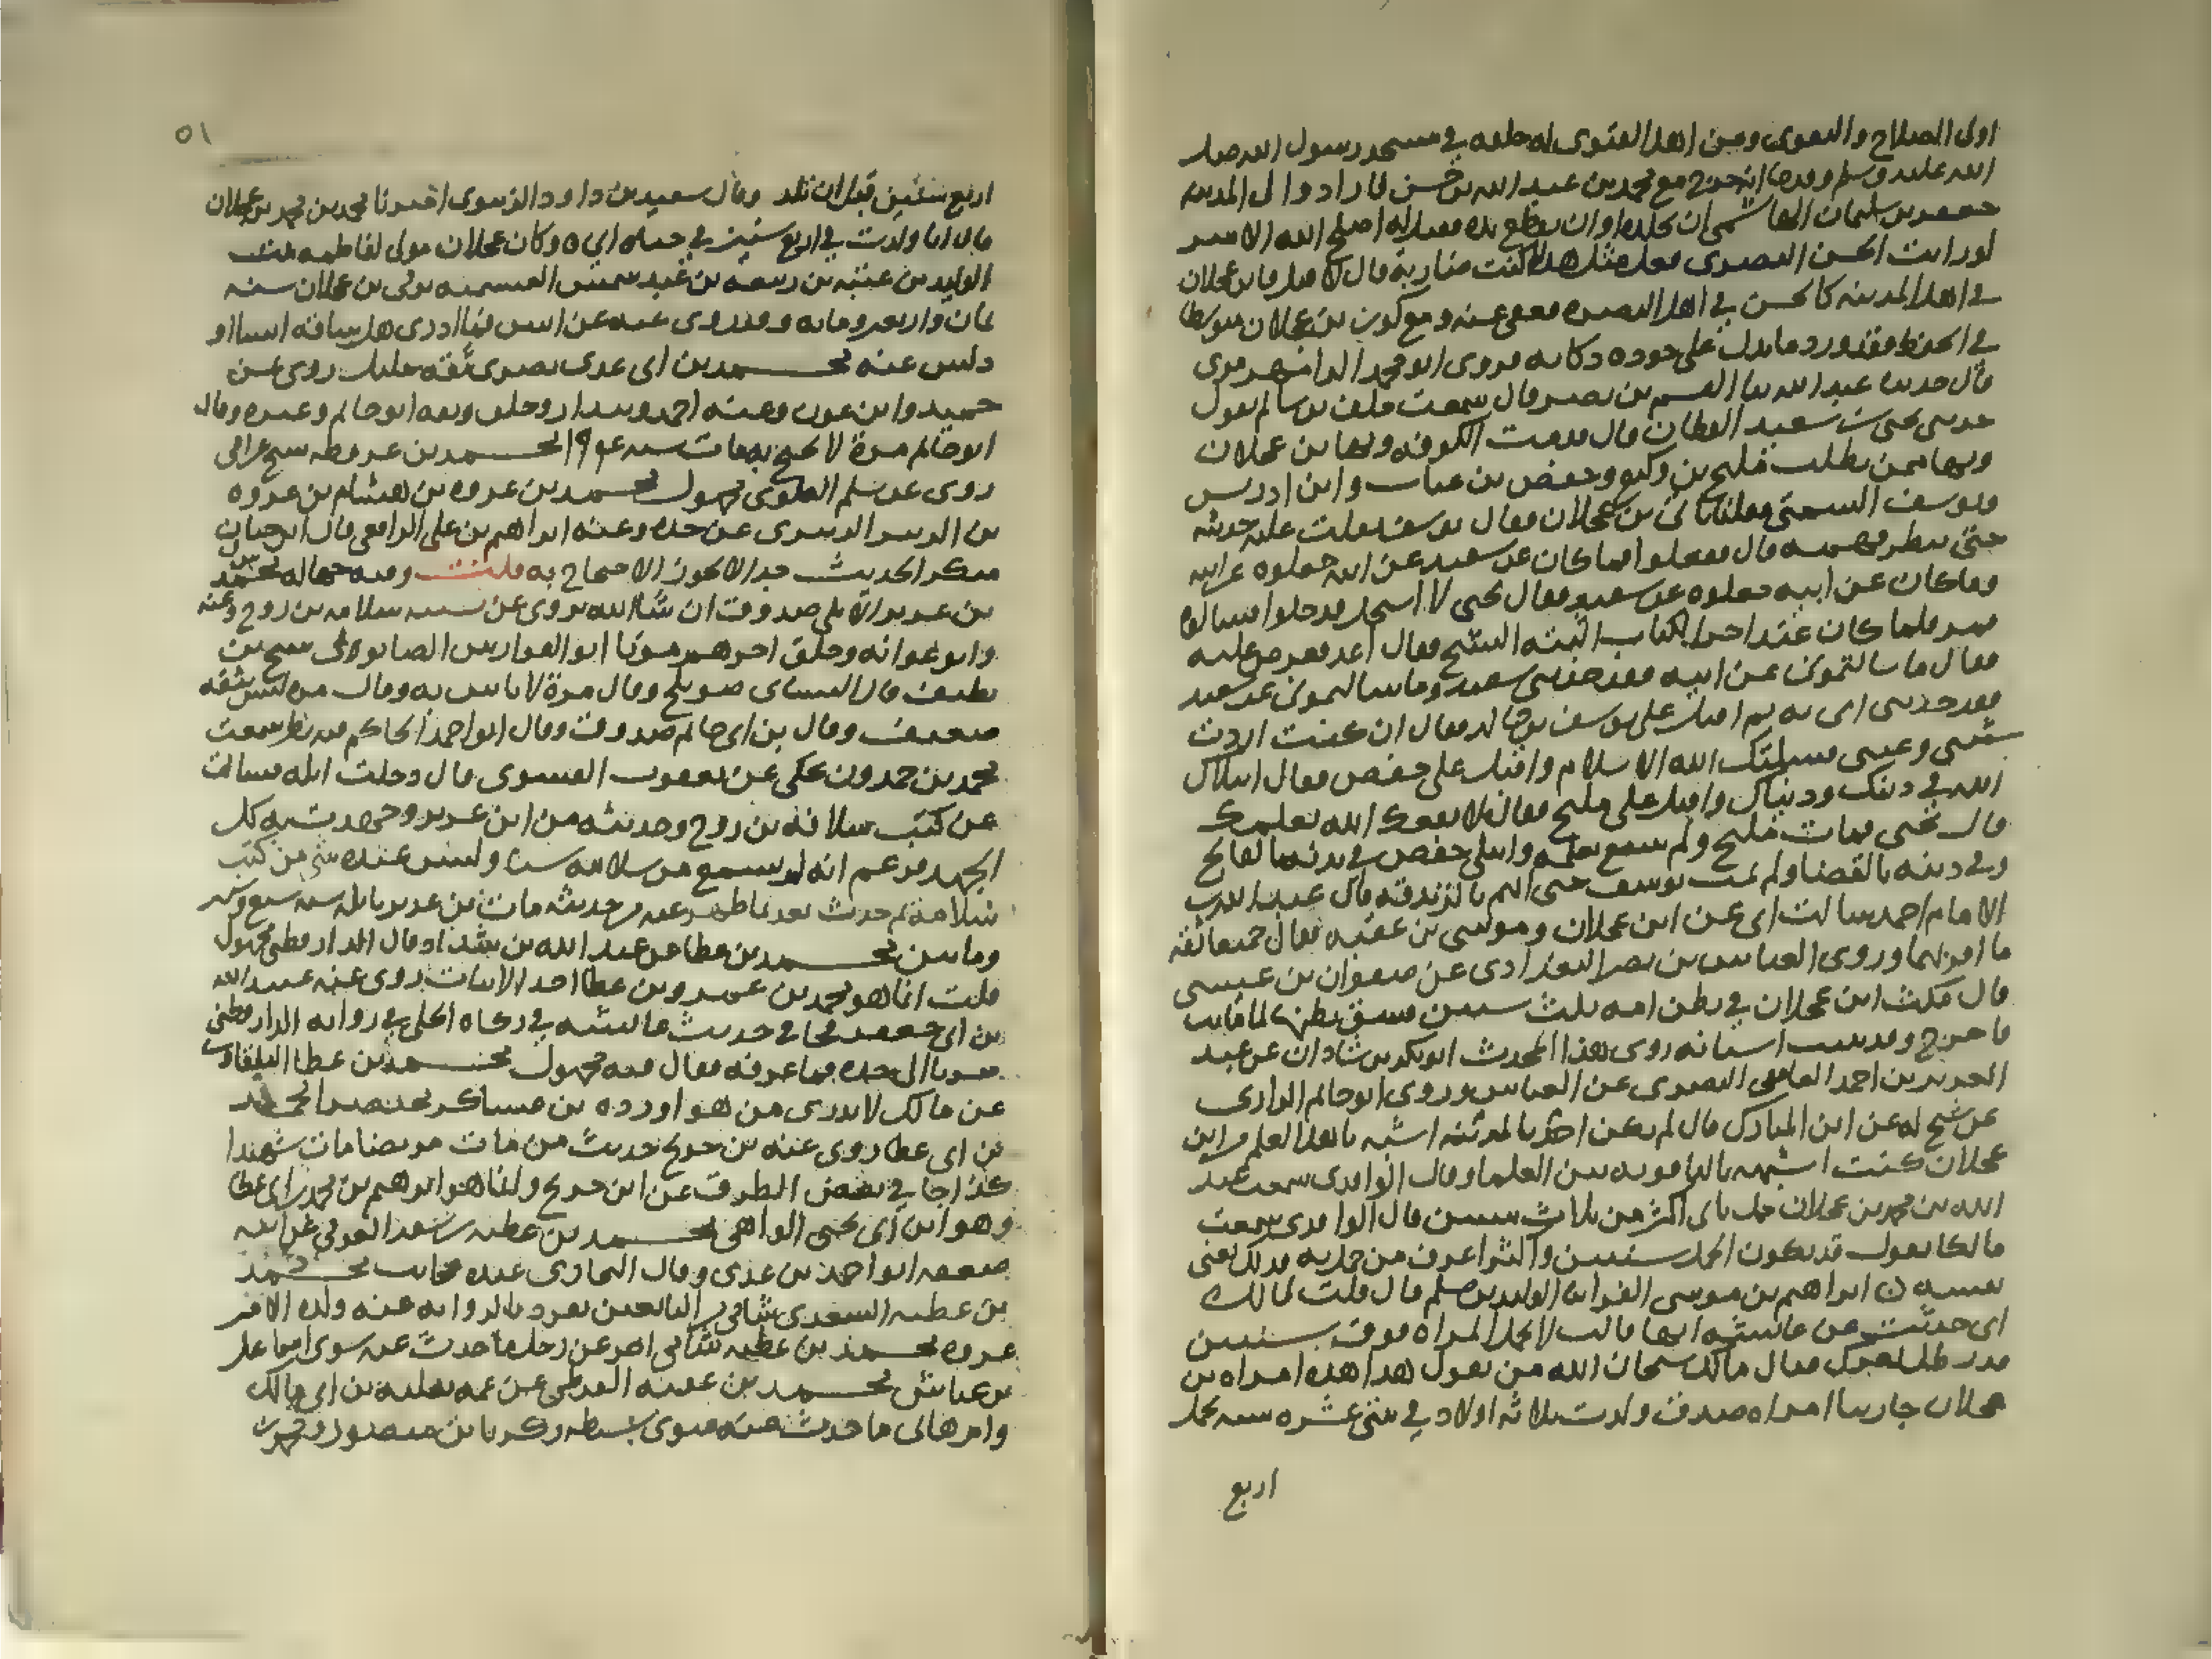 اولى الصلاح والتقوى ومن اهل الفتوى له حلقه في مسجد رسول الله صلى
الله عليه وسلم وورد انه خرج مع محمد بن عبد الله بن حسن فاراد والى المدينه
جعفر بن سليمان الهاشمي ان يجلده او ان يقطع يده فقيل له اصلح الله الامير
لو رايت الحسن البصرى فعل مثل هذا اكنت ضاربه قال لا قيل فابن عجلان
في اهل المدينه كالحسن في اهل البصره فعفى عنه ومع كون بن عجلان متوسطا
في الحفظ فقد ورد ما يدل على جوده ذكائه فروى ابو محمد الرامهرمزى
قال حدثنا عبد الله ثنا القسم بن نصر قال سمعت خلف بن سالم يقول
حدثنى يحيى بن سعيد القطان قال قدمت الكوفه وبها ابن عجلان
وبها ممن يطلب مليح بن وكيع وحفص بن غياث وابن ادريس
ويوسف السمتي فقلنا ناتى بن عجلان فقال يوسف نقلب عليه حديثه
حتى ننظر فهمه قال ففعلوا فما كان عن سعيد عن ابيه جعلوه عن ابيه
وما كان عن ابيه جعلوه عن سعيد فقال يحيى لا استحل فدخلوا فسالوه
فمر فلما كان عند اخر الكتاب انتبه الشيخ فقال اعد فعرض عليه
فقال ما سالتموني عن ابيه فقد حدثني سعيد وما سالتموني عن سعيد
فقد حدثنى ابى به ثم اقبل على يوسف بن خالد فقال ان كنت اردت
شيني وعيبي فسلبك الله الاسلام واقبل على حفص فقال ابتلاك
الله في دينك ودنياك واقبل على مليح فقال لا نفعك الله بعلمك
قال يحيى فمات مليح ولم ينتفع بعلمه وابتلى حفص في بدنه بالفالج
وفي دينه بالقضا ولم يمت يوسف حتى اتهم بالزندقه قال عبد الله بن
الامام احمد سالت ابى عن ابن عجلان وموسى بن عقبه فقال جميعا ثقه
ما اقربهما وروى العباس بن نصر البغدادى عن صفوان بن عيسى
قال مكث ابن عجلان في بطن امه ثلث سنين فشق بطنها لما ماتت
فاخرج وقد نبتت اسنانه روى هذا المحدث ابو بكر بن شاذان عن عبد
العزيز بن احمد الغافقى المصرى عن العباس وروى ابو حاتم الرازى
عن شيخ له عن ابن المبارك قال لم يكن احد بالمدينه اشبه باهل العلم من ابن
عجلان كنت اشبهه بالياقوته بين العلما وقال الواقدى سمعت عبد
الله بن محمد بن عجلان حمل بابى اكثر من ثلاث سنين قال الواقدى سمعت
مالكا يقول قد يكون الحمل سنتين واكثر اعرف من حمل به كذلك يعنى
نفسه ن ابراهيم بن موسى الفرا ثنا الوليد بن مسلم قال قلت لمالك
اى حديث عن عائشه انها قالت لا تحمل المراه فوق سنتين
قدر ظل مغزل فقال مالك سبحان الله من يقول هذا هذه امراه بن
عجلان جارتنا امراه صدق ولدت ثلاثه اولاد في ثنتى عشره سنه تحمل
اربع
٥١
اربع سنين قبل ان تلد وقال سعيد بن داود الزنبرى اخبرنا محمد بن محمد بن عجلان
قال انا ولدت في اربع سنين في حياه ابي ٥ وكان عجلان مولى لفاطمه بنت
الوليد بن عتبه بن ربيعه بن عبد شمس العبشميه توفى بن عجلان سنه
ثمان واربعين ومايه وقد روى عنه عن انس فما ادرى هل شافه انسا او
دلس عنه محمد بن ابى عدى بصرى ثقه جليل روى عن
حميد وابن عون وعنه احمد وبندار وخلق وثقه ابو حاتم وغيره وقال
ابو حاتم مرة لا يحتج به مات سنه ١٩٤ محمد بن عرفطه شيخ عراقى
روى عن سلم العلوى مجهول محمد بن عروه بن هشام بن عروه
بن الزبير الزبيرى عن جده وعنه ابراهيم بن على الرافعى قال ابن حبان
منكر الحديث جدا لا يجوز الاحتجاج به قلت وفيه جهاله محمد
بن عزيز الايلى صدوق ان شا الله يروى عن نسيبه سلامه بن روح وعنه
وابو عوانه وخلق اخرهم موتا ابو الفوارس الصابونى شيخ بن
نظيف قال النسائى صويلح وقال مرة لا باس به وقال مره ليس بثقه
ضعيف وقال بن ابى حاتم صدوق وقال ابو احمد الحاكم فيه نظر سمعت
محمد بن حمدون يحكى عن يعقوب الفسوى قال دخلت ايله فسالت
عن كتب سلامه بن روح وحديثه من ابن عزيز وجهدت به كل
الجهد فزعم انه لم يسمع من سلامه شيا وليس عنده شى من كتب
سلامة ثم حدث بعد بما ظهر عنه من حديثه مات بن عزيز بايله سنه سبع وستين
ومايتين محمد بن عطا عن عبد الله بن شداد قال الدارقطنى مجهول
قلت انما هو محمد بن عمرو بن عطا احد الاثبات روى عنه عبيد الله
بن ابى جعفر فجا في حديث عائشه في زكاه الحلى في روايه الدارقطنى
منسوبا الى جده فما عرفه فقال فيه مجهول محمد بن عطا البلقاوى
عن مالك لا يدرى من هو اورده بن عساكر مختصرا محمد
بن ابى عطا روى عنه بن جريج حديث من مات مريضا مات شهيدا
كذا جا في بعض الطرق عن ابن جريج وانما هو ابراهيم بن محمد بن ابى عطا
وهو ابن ابى يحيى الواهى محمد بن عطيه بن سعد العوفي عن ابيه
ضعفه ابو احمد بن عدى وقال البخارى عنده عجائب محمد
بن عطيه السعدى شامى من التابعين تفرد بالروايه عنه ولده الامير
عروه محمد بن عطيه شامى اخر عن رجل ما حدث عنه سوى اسماعيل
بن عياش محمد بن عقبه القرظى عن عمه ثعلبه بن ابى مالك
وام هانى ما حدث عنه سوى سبطه زكريا بن منصور